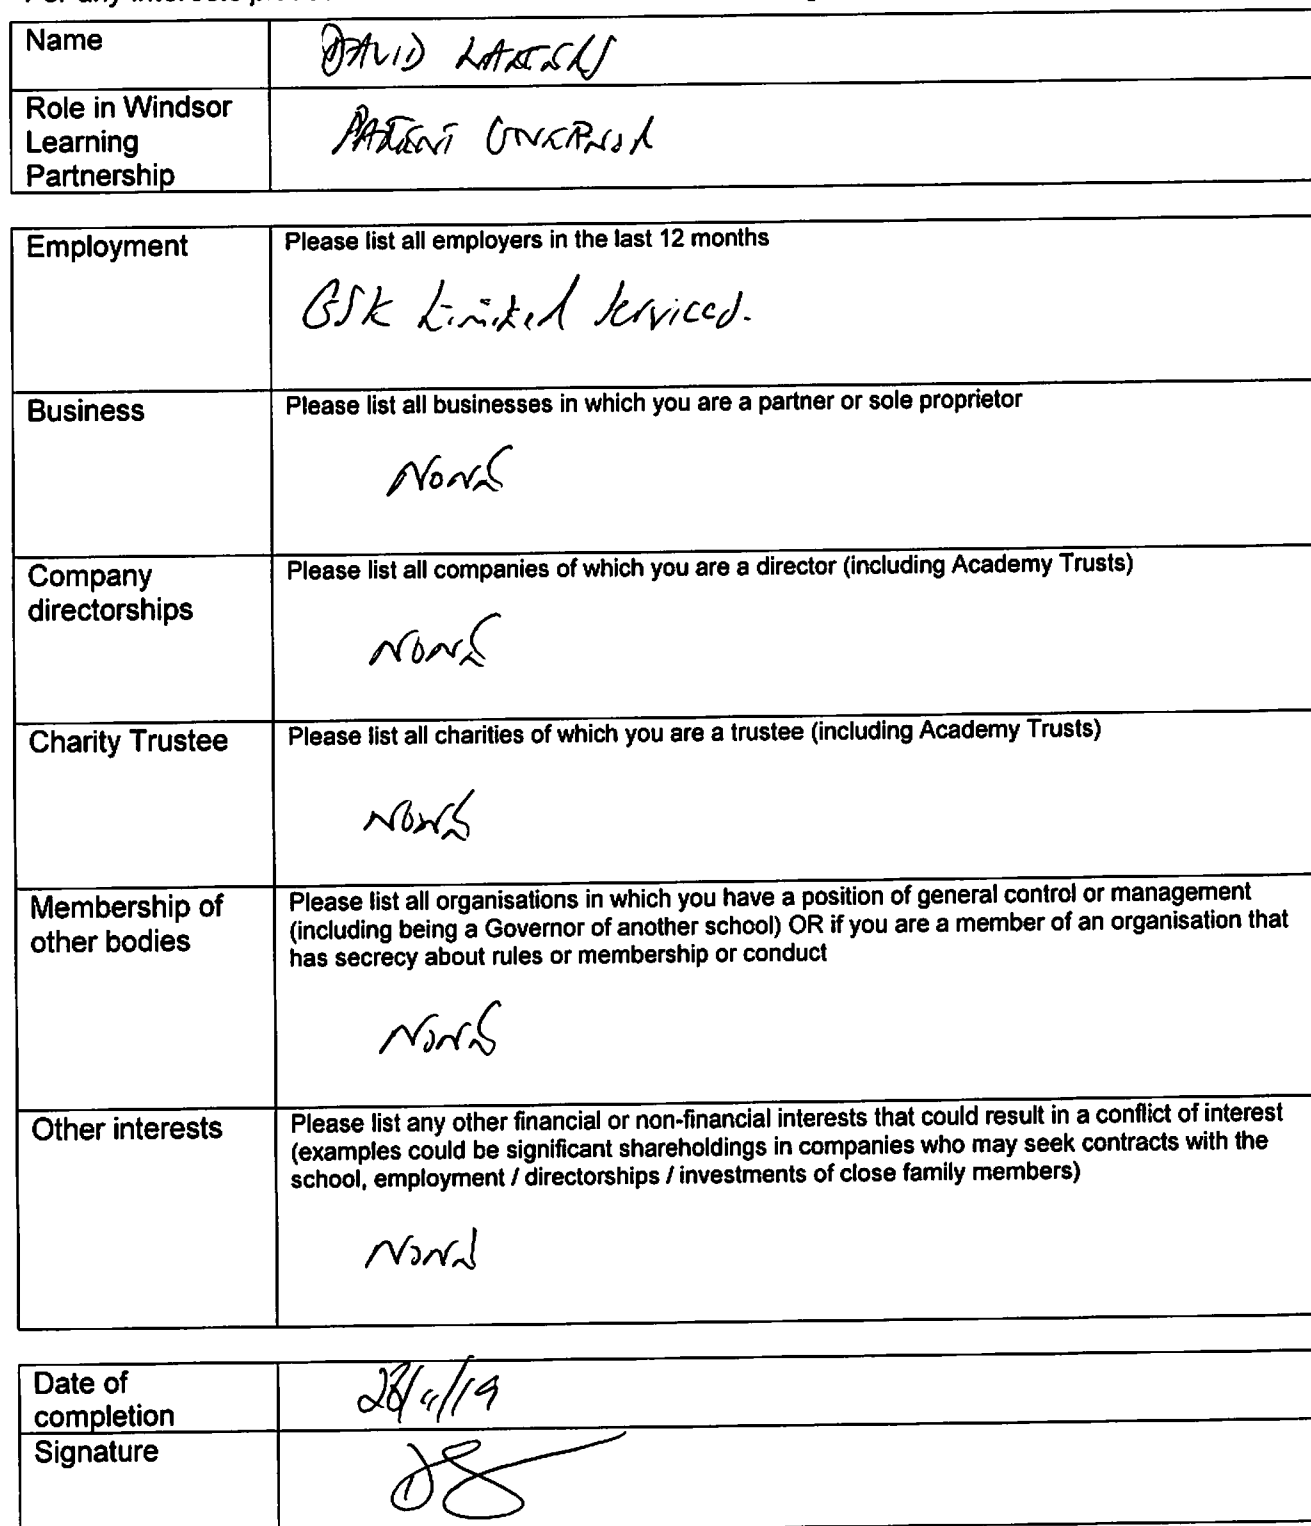 Name
DAVID
Role in Windsor
Learning
Partnership
PARENT GOVERNOR
Employment
Please list all employers in the last 12 months
GSK Limited Services.
Business
Please list all businesses in which you are a partner or sole proprietor
NONE
Company
directorships
Please list all companies of which you are a director (including Academy Trusts)
NONE
Charity Trustee
Please list all charities of which you are a trustee (including Academy Trusts)
NONE
Membership of
other bodies
Please list all organisations in which you have a position of general control or management
(including being a Governor of another school) OR if you are a member of an organisation that
has secrecy about rules or membership or conduct
NONE
Other interests
Please list any other financial or non-financial interests that could result in a conflict of interest
(examples could be significant shareholdings in companies who may seek contracts with the
school, employment / directorships / investments of close family members)
NONE
Date of
completion
Signature